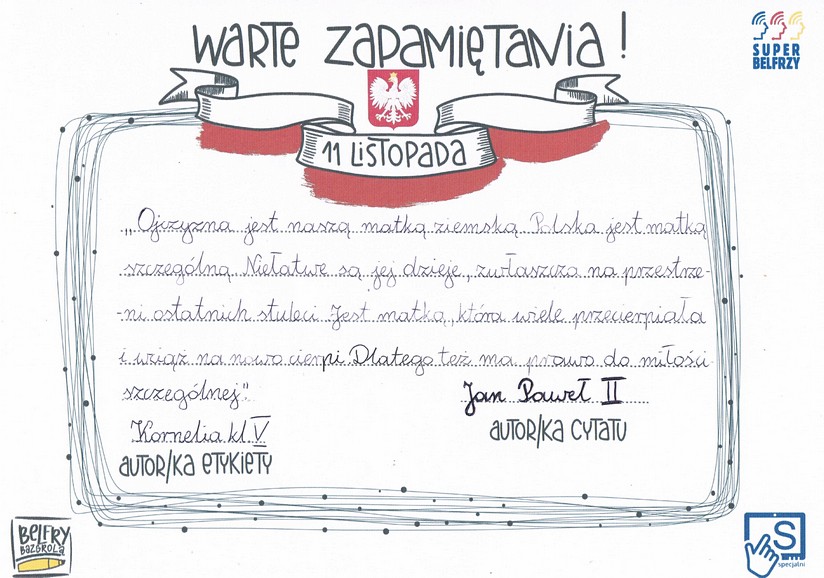 WARTE ZAPAMIĘTANIA!
SUPER
BELFRZY
11 LISTOPADA
„Ojczyzna jest naszą matką ziemską. Polska jest matką
szczególną. Niełatwe są jej dzieje, zwłaszcza na przestrze-
-ni ostatnich stuleci. Jest matką, która wiele przecierpiała
i wciąż na nowo cierpi. Dlatego też ma prawo do miłości
szczególnej".
Jan Paweł II
AUTOR/KA CYTATU
Kornelia kl. V
AUTOR/KA ETYKIETY
BELFRY
BAZGROLĄ
S
specjalni